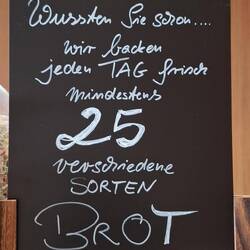 Wussten Sie schon....
wir backen
jeden TAG frisch
mindestens
25
verschiedene
SORTEN
BROT